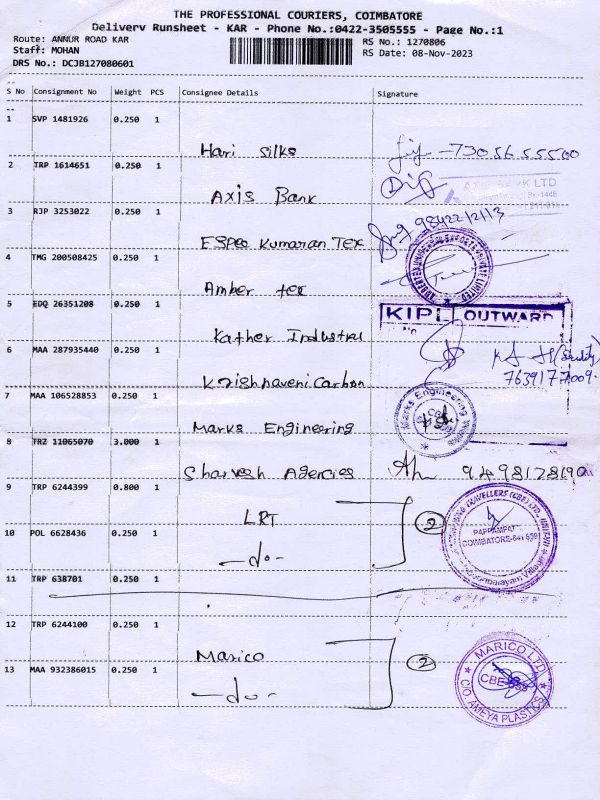 THE PROFESSIONAL COURIERS, COIMBATORE
Delivery Runsheet - KAR - Phone No.:0422-3505555 - Page No.:1
Route: ANNUR ROAD KAR
RS No.: 1270806
Staff: MOHAN
RS Date: 08-Nov-2023
DRS No.: DCJB127080601
S No Consignment No Weight PCS Consignee Details Signature
1 SVP 1481926 0.250 1
Hari Silks 730 56 55500
2 TRP 1614651 0.250 1
Axis Bank
3 RJP 3253022 0.250 1
9842212113
ESPee Kumaran Tex
4 TMG 200508425 0.250 1
Amber tex
5 EDQ 26351208 0.250 1
KIPL OUTWARD
Kather Industrial
6 MAA 287935440 0.250 1
7639177009
Krishnaveni Carbon
7 MAA 106528853 0.250 1
Marks Engineering
Marks Engineering
8 TRZ 11065070 3.000 1
Sharvesh Agencies 9498178190
9 TRP 6244399 0.800 1
LRT 2
PAPPAMPATTI
COIMBATORE-641 659
10 POL 6628436 0.250 1
-do-
11 TRP 638701 0.250 1
12 TRP 6244100 0.250 1
Marico 2
MARICO LTD
CBE-659
C/O. AMEYA PLASTICS
13 MAA 932386015 0.250 1
-do-